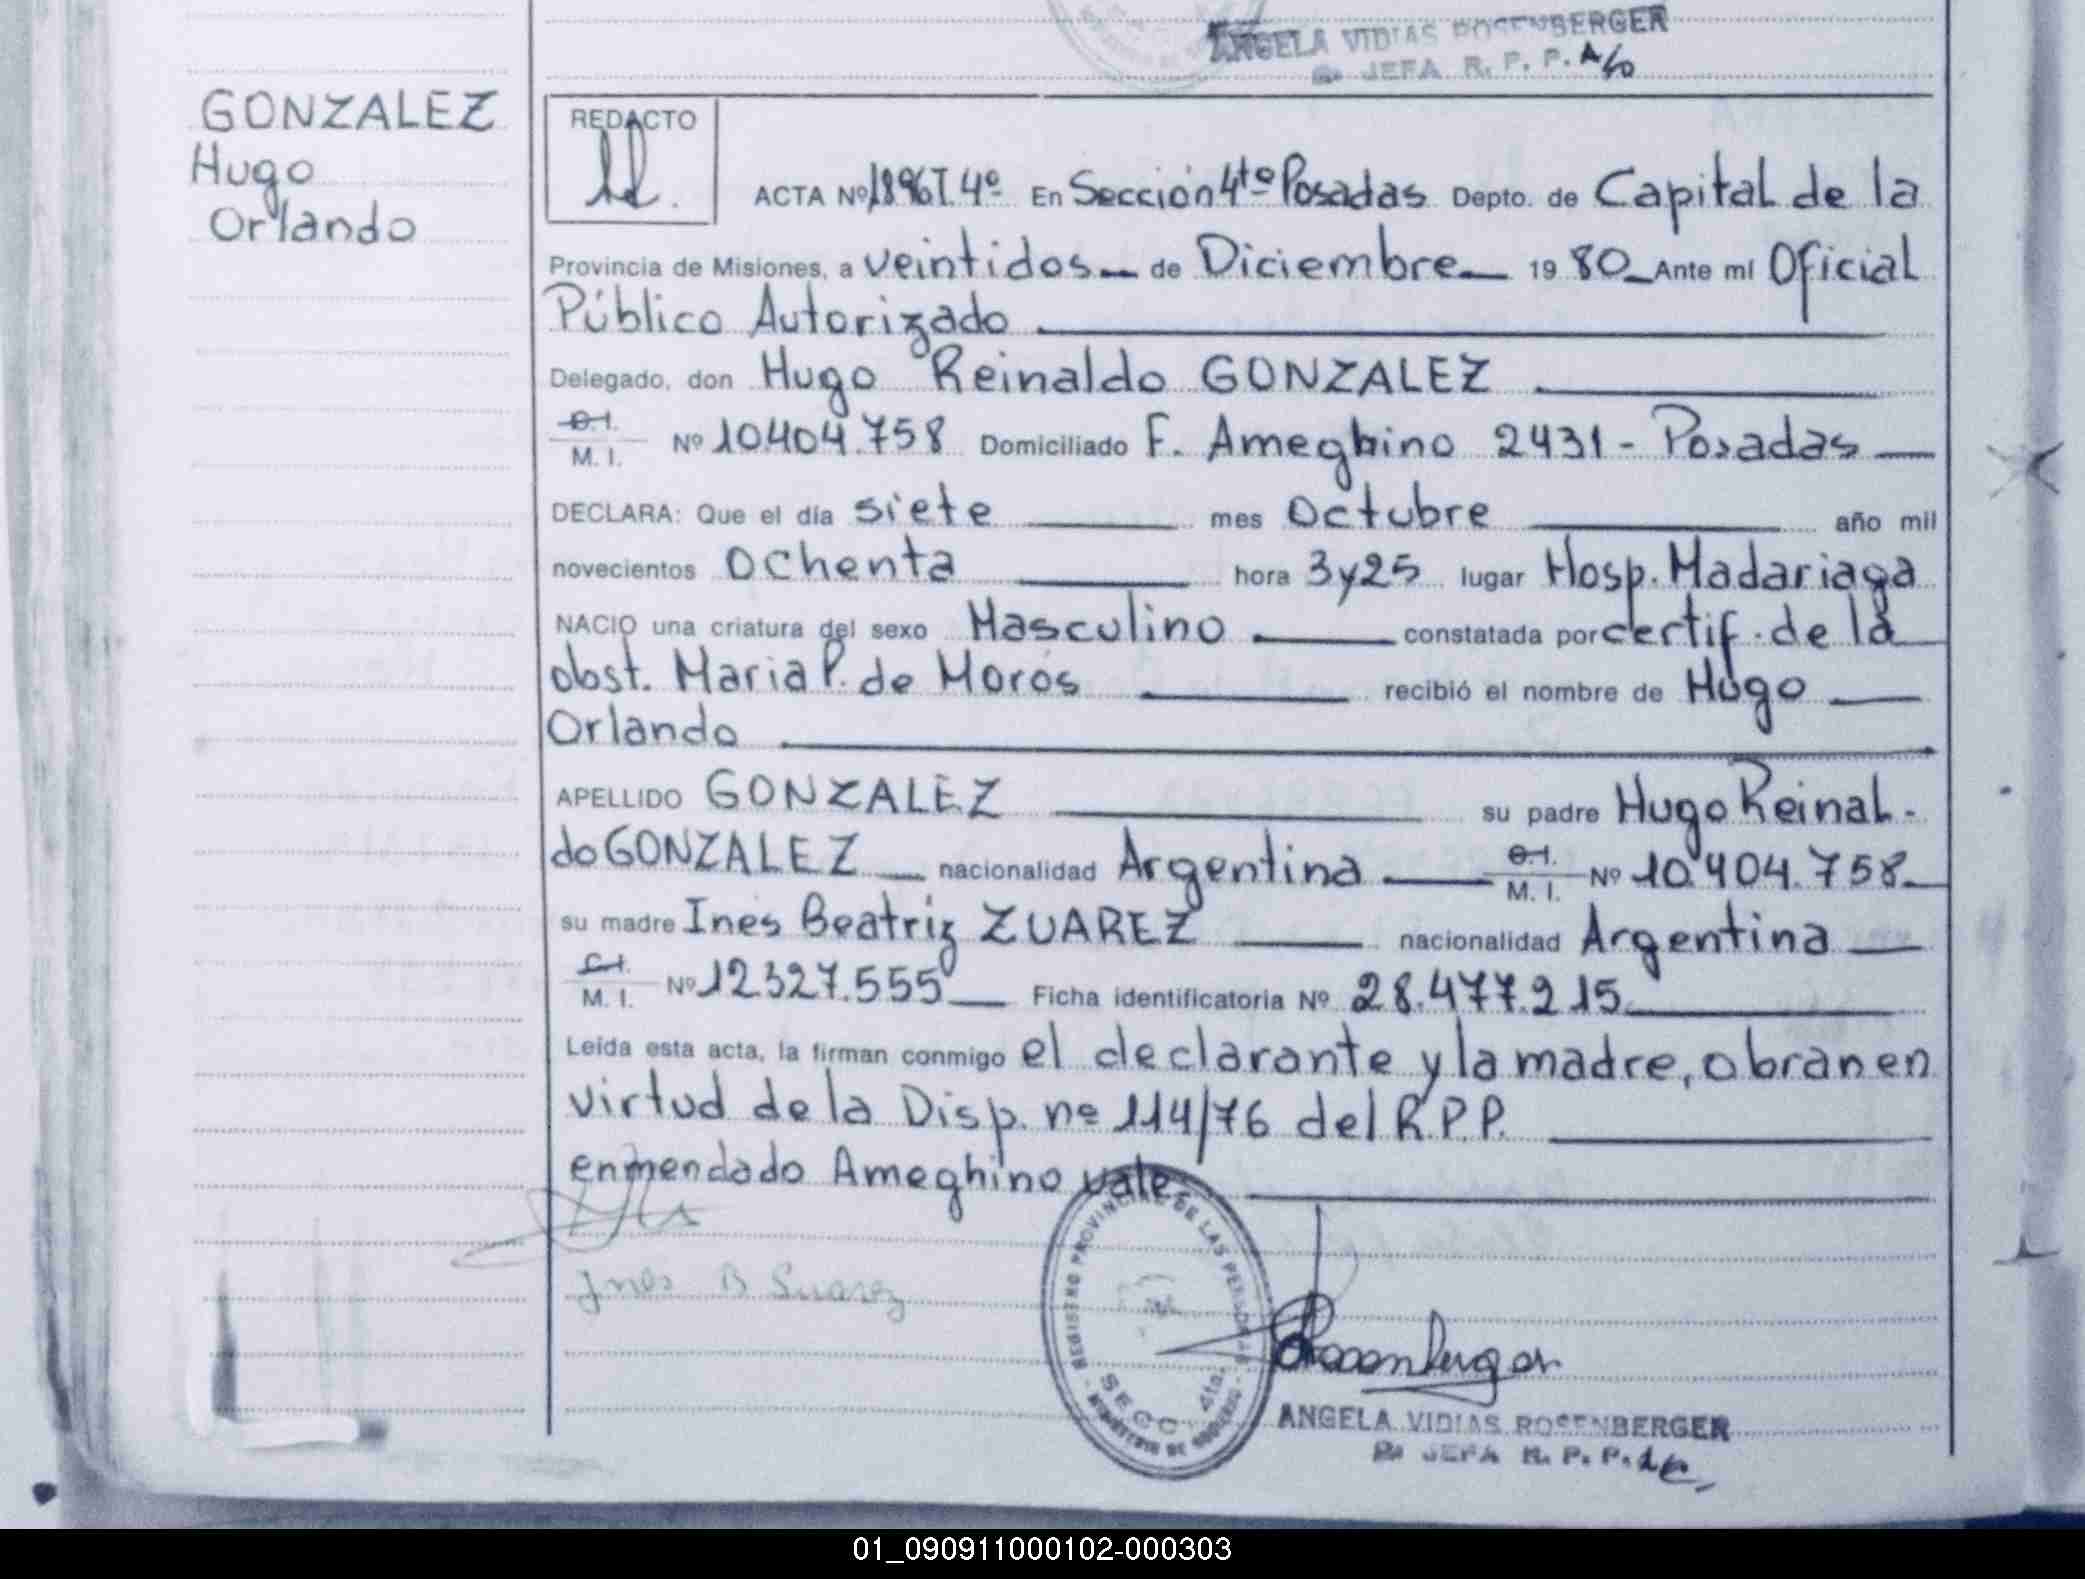 ANGELA VIDIAS ROSENBERGER
JEFA R. P. P.
GONZALEZ
Hugo
Orlando
REDACTO
ACTA Nº 1896 T. 4º En Sección 4tº Posadas Depto. de Capital de la
Provincia de Misiones, a veintidos de Diciembre 19 80 Ante mí Oficial
Público Autorizado
Delegado, don Hugo Reinaldo GONZALEZ
C.I.
M. I. Nº 10.404.758 Domiciliado F. Ameghino 2431 - Posadas
DECLARA: Que el día siete mes Octubre año mil
novecientos Ochenta hora 3 y 25 lugar Hosp. Madariaga
NACIO una criatura del sexo Masculino constatada por certif. de la
obst. Maria P. de Moros recibió el nombre de Hugo
Orlando
APELLIDO GONZALEZ su padre Hugo Reinal-
do GONZALEZ nacionalidad Argentina C.I. M. I. Nº 10.404.758
su madre Ines Beatriz ZUAREZ nacionalidad Argentina
C.I.
M. I. Nº 12.327.555 Ficha identificatoria Nº 28.477.215
Leída esta acta, la firman conmigo el declarante y la madre, obran en
virtud de la Disp. nº 114/76 del R.P.P.
enmendado Ameghino vale.
Ines B Suarez
REGISTRO PROVINCIAL DE LAS PERSONAS
SECC. 4ta.
MINISTERIO DE GOBIERNO
Rosenberger
ANGELA VIDIAS ROSENBERGER
JEFA R. P. P.
01_090911000102-000303